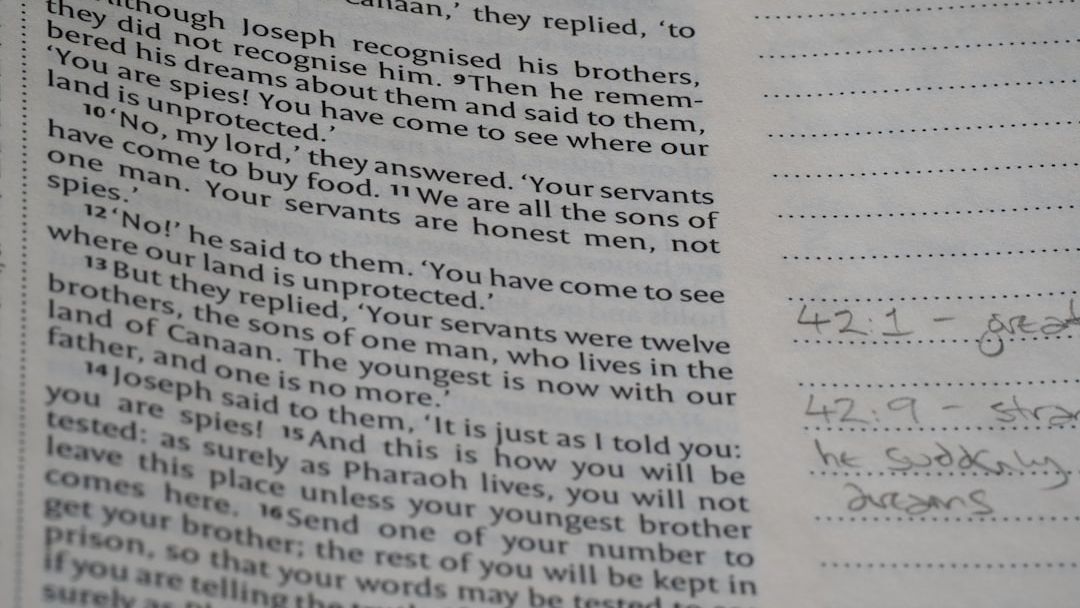 Canaan,' they replied, 'to
Although Joseph recognised his brothers,
they did not recognise him. 9 Then he remem-
bered his dreams about them and said to them,
'You are spies! You have come to see where our
land is unprotected.'
10 'No, my lord,' they answered. 'Your servants
have come to buy food. 11 We are all the sons of
one man. Your servants are honest men, not
spies.'
12 'No!' he said to them. 'You have come to see
where our land is unprotected.'
13 But they replied, 'Your servants were twelve
brothers, the sons of one man, who lives in the
land of Canaan. The youngest is now with our
father, and one is no more.'
14 Joseph said to them, 'It is just as I told you:
you are spies! 15 And this is how you will be
tested: as surely as Pharaoh lives, you will not
leave this place unless your youngest brother
comes here. 16 Send one of your number to
get your brother; the rest of you will be kept in
prison, so that your words may be tested to see
if you are telling the
surely as
42:1 - great
42:9 - stran
he suddenly
dreams